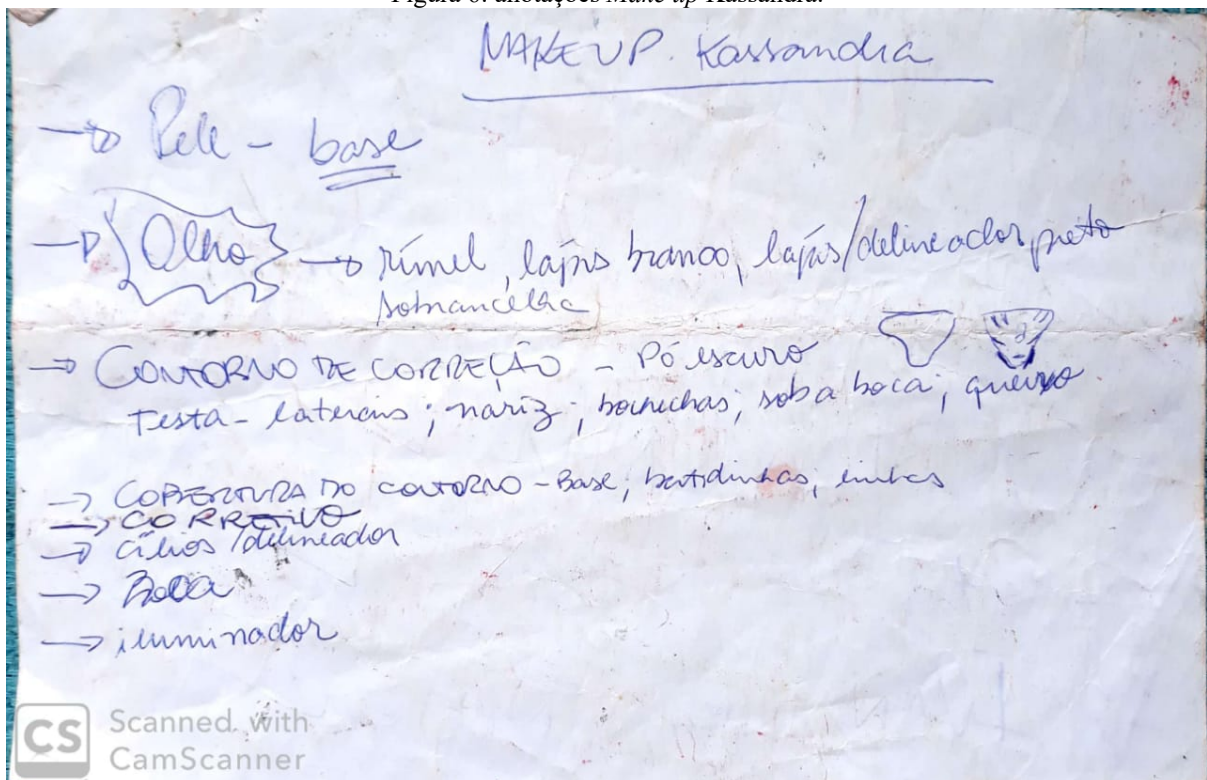 Figura 6: anotações Make up Kassandra.
MAKEUP. Kassandra
→ Pele - base
→ Olho → rímel, lápis branco, lápis/delineador preto
sobrancelha
→ CONTORNO DE CORREÇÃO - Pó escuro
Testa - laterais; nariz; bochechas; sob a boca; queixo
→ COBERTURA DO CONTORNO - Base; batidinhas;
→ CORRETIVO
→ cílios/delineador
→ Boca
→ iluminador
CS Scanned with
CamScanner